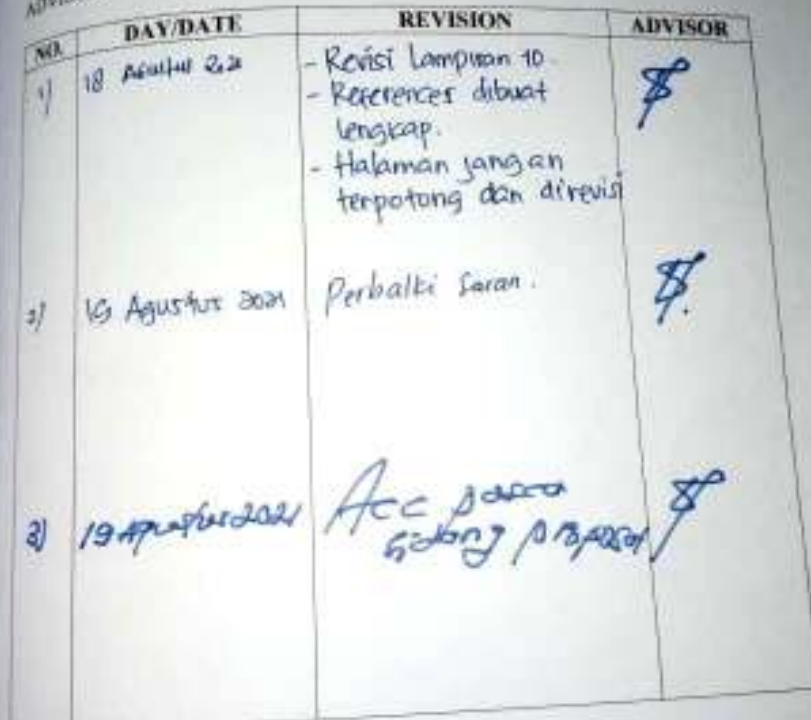 NO. DAY/DATE REVISION ADVISOR
1) 18 Agustus 2021 - Revisi Lampiran 10.
- References dibuat
lengkap.
- Halaman jangan
terpotong dan direvisi
2) 19 Agustus 2021 Perbaiki Saran.
3) 19 Agustus 2021 Acc pasca
sidang proposal